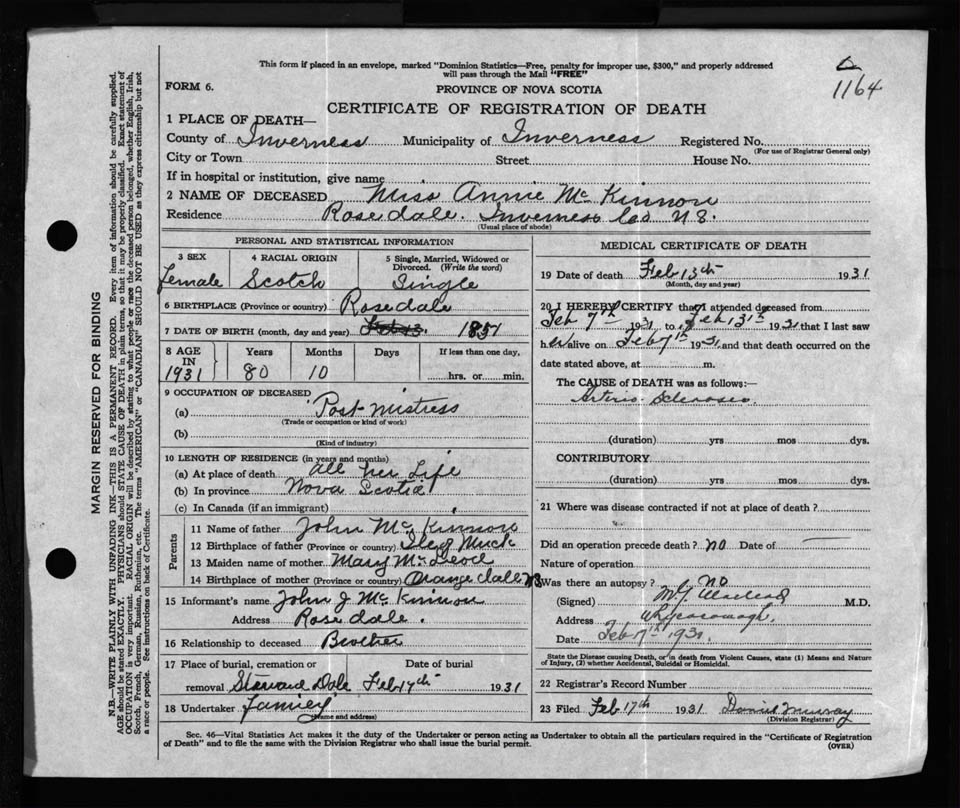 This form if placed in an envelope, marked "Dominion Statistics—Free, penalty for improper use, $300," and properly addressed
will pass through the Mail "FREE"
1164
FORM 6.
PROVINCE OF NOVA SCOTIA
CERTIFICATE OF REGISTRATION OF DEATH
1 PLACE OF DEATH—
County of Inverness Municipality of Inverness Registered No.
(For use of Registrar General only)
City or Town Street House No.
If in hospital or institution, give name
2 NAME OF DECEASED Miss Annie McKinnon
Residence Rosedale. Inverness Co. N S.
(Usual place of abode)
PERSONAL AND STATISTICAL INFORMATION
3 SEX
Female
4 RACIAL ORIGIN
Scotch
5 Single, Married, Widowed or Divorced. (Write the word)
Single
6 BIRTHPLACE (Province or country) Rosedale
7 DATE OF BIRTH (month, day and year) Feb 13. 1851
8 AGE IN 1931
Years 80
Months 10
Days
If less than one day,
hrs. or min.
9 OCCUPATION OF DECEASED
(a) Post-mistress
(Trade or occupation or kind of work)
(b)
(Kind of industry)
10 LENGTH OF RESIDENCE (in years and months)
(a) At place of death all her Life
(b) In province Nova Scotia
(c) In Canada (if an immigrant)
Parents
11 Name of father John McKinnon
12 Birthplace of father (Province or country) Isle of Muck
13 Maiden name of mother Mary McLeod
14 Birthplace of mother (Province or country) Orangedale NS
15 Informant's name John J McKinnon
Address Rosedale.
16 Relationship to deceased Brother
17 Place of burial, cremation or Date of burial
removal Dale Feb 17th 1931
18 Undertaker
(Name and address)
MEDICAL CERTIFICATE OF DEATH
19 Date of death Feb 13th 1931
(Month, day and year)
20 I HEREBY CERTIFY that I attended deceased from
Feb 7th 1931 to Feb 13th 1931 that I last saw
her alive on Feb 7th 1931 and that death occurred on the
date stated above, at m.
The CAUSE of DEATH was as follows:
Arterio Sclerosis
(duration) yrs mos dys.
CONTRIBUTORY
(duration) yrs mos dys.
21 Where was disease contracted if not at place of death?
Did an operation precede death? no Date of
Nature of operation
Was there an autopsy? no
(Signed) Macleod M.D.
Address Whycocomagh.
Date Feb 17th 1931.
State the Disease causing Death, or in death from Violent Causes, state (1) Means and Nature
of Injury, (2) whether Accidental, Suicidal or Homicidal.
22 Registrar's Record Number
23 Filed Feb 17th 1931 Daniel Murray
(Division Registrar)
Sec. 46—Vital Statistics Act makes it the duty of the Undertaker or person acting as Undertaker to obtain all the particulars required in the "Certificate of Registration
of Death" and to file the same with the Division Registrar who shall issue the burial permit.
(OVER)
MARGIN RESERVED FOR BINDING
N.B.—WRITE PLAINLY WITH UNFADING INK—THIS IS A PERMANENT RECORD. Every item of information should be carefully supplied.
AGE should be stated EXACTLY. PHYSICIANS should STATE CAUSE OF DEATH in plain terms, so that it may be properly classified. Exact statement of
OCCUPATION is very important. RACIAL ORIGIN will be described by stating to what people or race the deceased person belonged, whether English, Irish,
Scotch, French, German, Russian, Ruthenian, etc. The terms "AMERICAN" or "CANADIAN" SHOULD NOT BE USED as they express citizenship but not
a race or people. See instructions on back of Certificate.